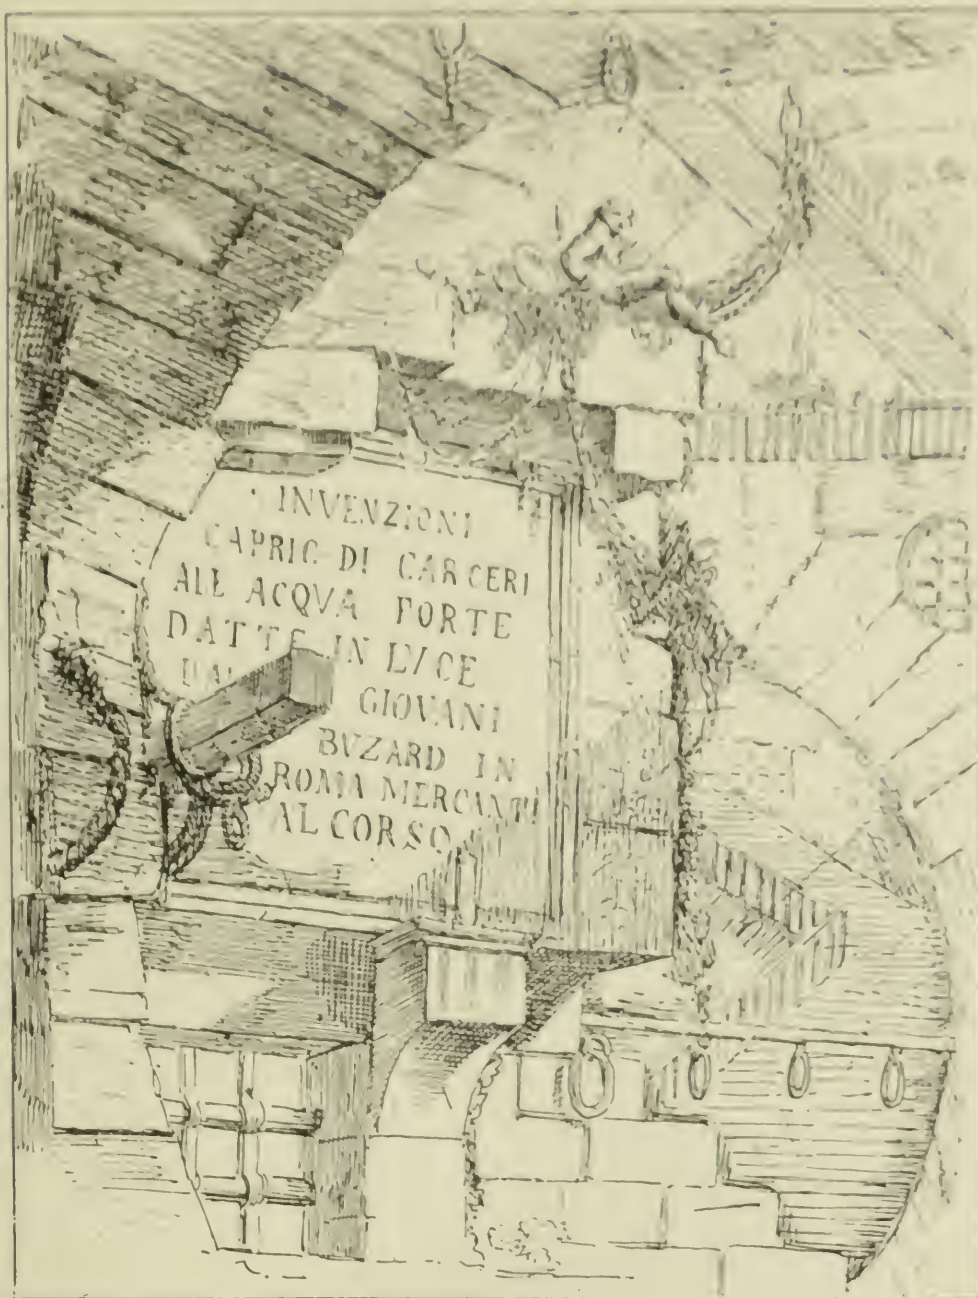 INVENZIONI
CAPRIC DI CARCERI
ALL ACQVA FORTE
DATTE IN LVCE
GIOVANI
BVZARD IN
ROMA MERCANTE
AL CORSO